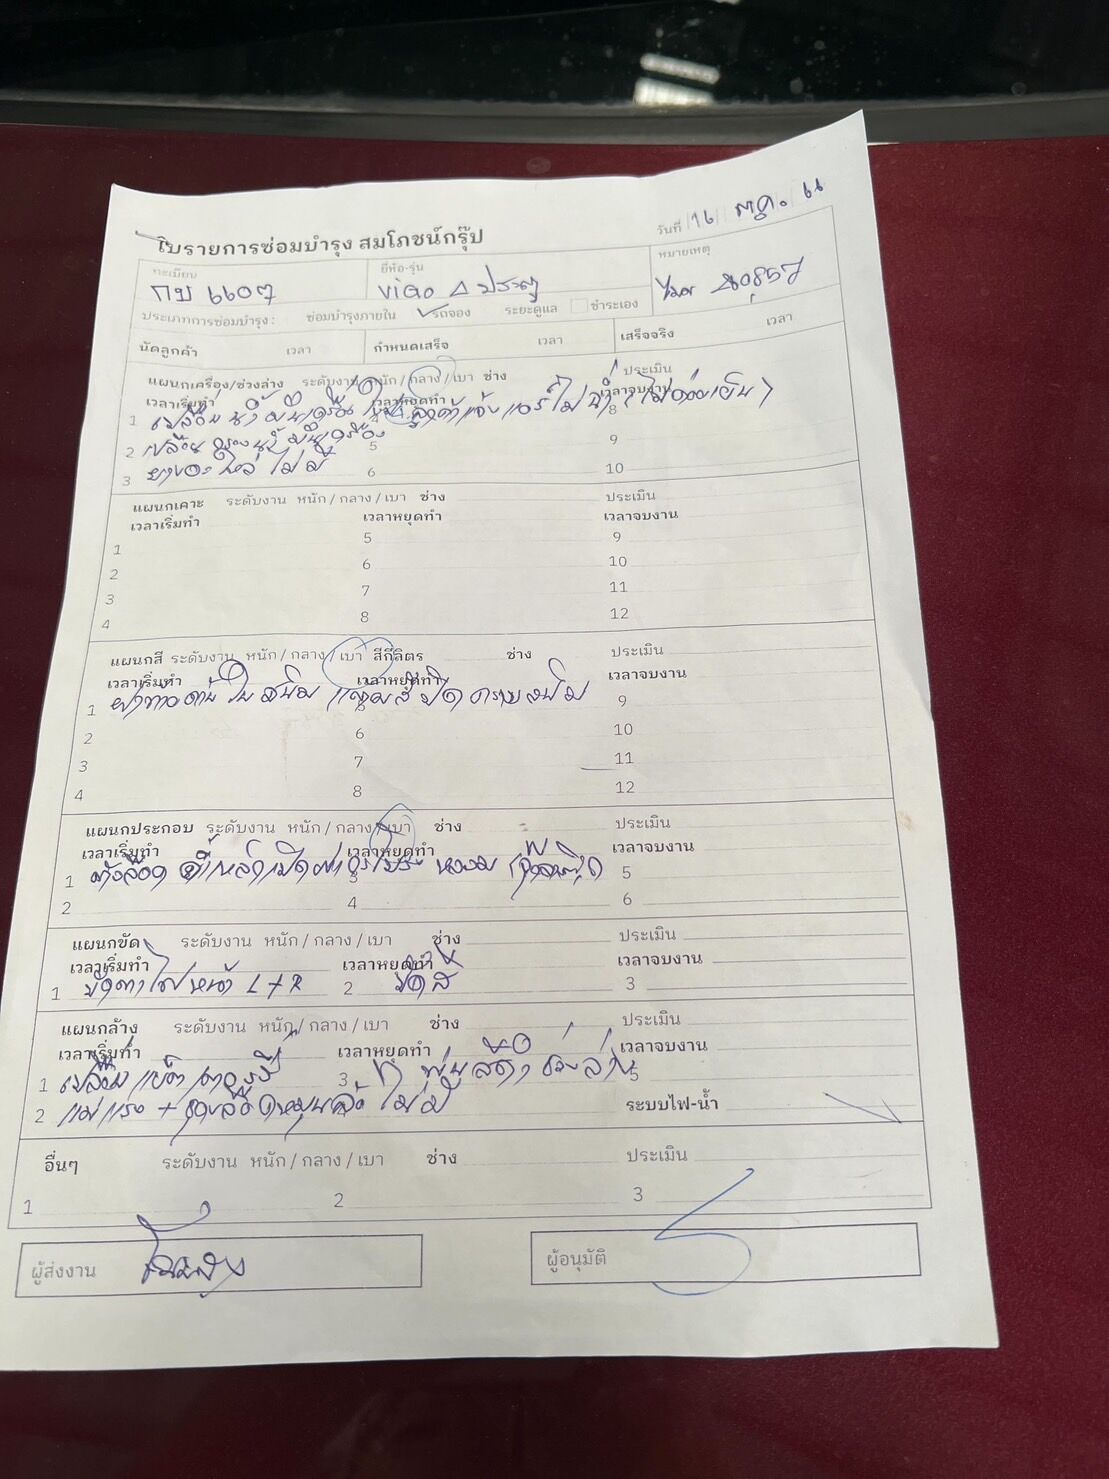 ใบรายการซ่อมบำรุง สมโภชน์กรุ๊ป
วันที่ 16 ตค. 66
ทะเบียน ยี่ห้อ-รุ่น หมายเหตุ
กบ 6607 ViGo 4 ประตู ไมล์
ประเภทการซ่อมบำรุง : ซ่อมบำรุงภายใน รถจอง ระยะดูแล ชำระเอง
นัดลูกค้า เวลา กำหนดเสร็จ เวลา เสร็จจริง เวลา
แผนกเครื่อง/ช่วงล่าง ระดับงาน หนัก / กลาง / เบา ช่าง ประเมิน
เวลาเริ่มทำ เวลาหยุดทำ เวลาจบงาน
1 เปลี่ยน น้ำมันเครื่อง ลูกค้าแจ้ง แอร์ไม่ฉ่ำ (ไม่ค่อยเย็น) 8
2 เปลี่ยน กรองน้ำมันเครื่อง 5 9
3 ไม่มี 6 10
แผนกเคาะ ระดับงาน หนัก / กลาง / เบา ช่าง ประเมิน
เวลาเริ่มทำ เวลาหยุดทำ เวลาจบงาน
1 5 9
2 6 10
3 7 11
4 8 12
แผนกสี ระดับงาน หนัก / กลาง / เบา สีกี่ลิตร ช่าง ประเมิน
เวลาเริ่มทำ เวลาหยุดทำ เวลาจบงาน
1 ฝาท้ายด้านในสนิม แต้มสีปิดคราบสนิม 9
2 6 10
3 7 11
4 8 12
แผนกประกอบ ระดับงาน หนัก / กลาง / เบา ช่าง ประเมิน
เวลาเริ่มทำ เวลาหยุดทำ เวลาจบงาน
1 3 หลวม 5
2 4 6
แผนกขัด ระดับงาน หนัก / กลาง / เบา ช่าง ประเมิน
เวลาเริ่มทำ เวลาหยุดทำ เวลาจบงาน
1 ขัดตาไฟหน้า L+R 2 ขัดสี 3
แผนกล้าง ระดับงาน หนัก / กลาง / เบา ช่าง ประเมิน
เวลาเริ่มทำ เวลาหยุดทำ เวลาจบงาน
1 เปลี่ยน 3 พ่นสีดำช่วงล่าง 5
2 แม่แรง + ไม่มี ระบบไฟ-น้ำ
อื่นๆ ระดับงาน หนัก / กลาง / เบา ช่าง ประเมิน
1 2 3
ผู้ส่งงาน ผู้อนุมัติ